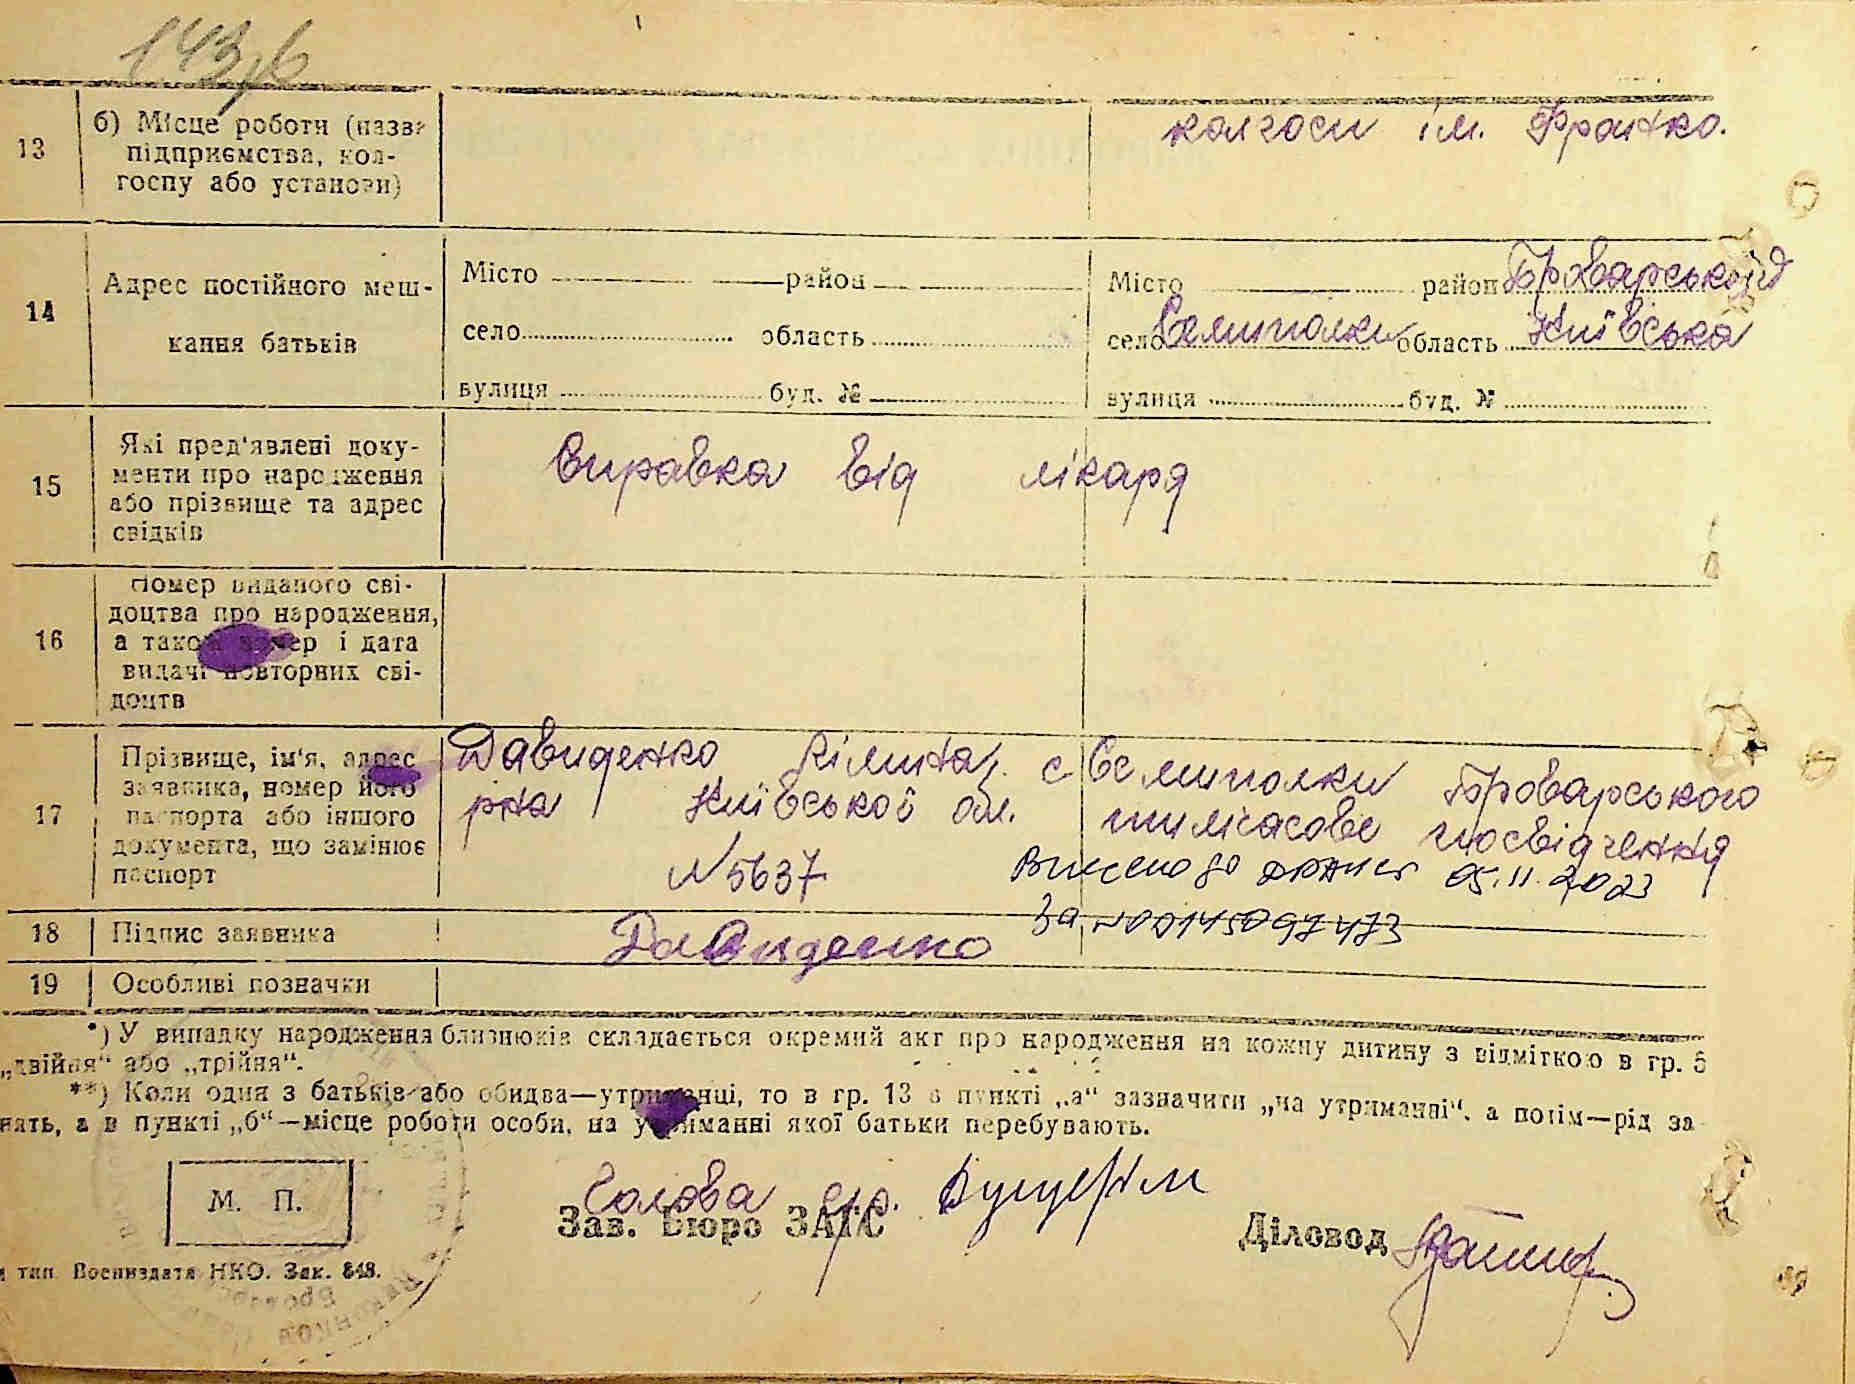 143
13
б) Місце роботи (назва
підприємства, кол-
госпу або установи)
колгосп ім. Франко.
14
Адрес постійного меш-
кання батьків
Місто район
село область
вулиця буд. №
Місто район Броварський
село Семиполки область Київська
вулиця буд. №
15
Які пред'явлені доку-
менти про народження
або прізвище та адрес
свідків
Справка від лікаря
16
Номер виданого сві-
доцтва про народження,
а також номер і дата
видачі повторних сві-
доцтв
17
Прізвище, ім'я, адрес
заявника, номер його
паспорта або іншого
документа, що замінює
паспорт
Давиденко с Семиполки Броварського
р-на Київської обл. посвідчення
N 5637
Внесено до ДРАЦСГ 05.11.2023
за N 00145097473
18
Підпис заявника
Давиденко
19
Особливі позначки
*) У випадку народження близнюків складається окремий акт про народження на кожну дитину з відміткою в гр. 5
„двійня“ або „трійня“.
**) Коли один з батьків або обидва—утриманці, то в гр. 13 в пункті „а“ зазначити „на утриманні“, а потім—рід за
нять, а в пункті „б“—місце роботи особи, на утриманні якої батьки перебувають.
М. П.
Голова
Зав. Бюро ЗАГС
Діловод
тип. Воениздата НКО. Зак. 848.